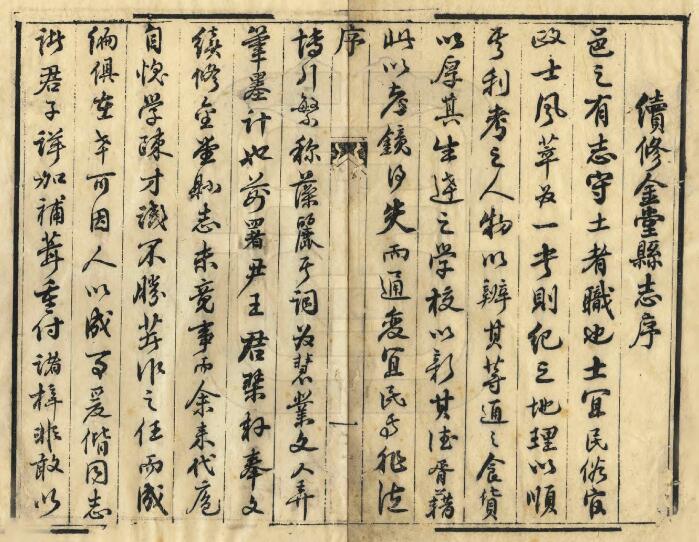 續修金堂縣志序
邑之有志守土者職也土宜民俗官
政士風萃為一書則紀之地理以順
其利考之人物以辨其等通之食貨
以厚其生達之學校以新其德胥藉
此以考鏡得失而通變宜民焉非徒
序
博引繁称藻麗其詞為慧業文人弄
筆墨計也前署尹王君琹材奉文
續修金堂縣志未竟事而余来代庖
自愧学疎才識不勝著作之任而成
编俱在幸可因人以成事爰偕同志
諸君子詳加補葺重付諸梓非敢以
一